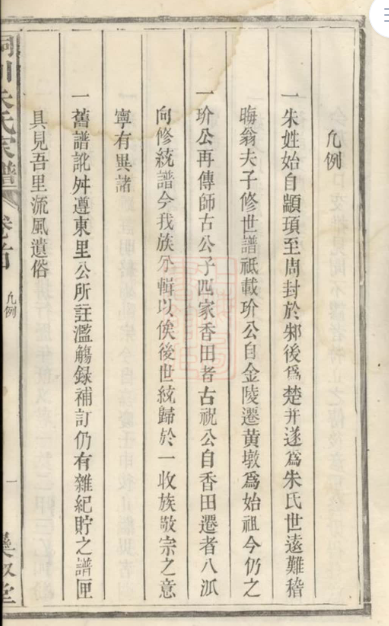 凡例
一朱姓始自顓頊至周封於邾後為楚并遂為朱氏世遠難稽
晦翁夫子修世譜祗載玠公自金陵遷黃墩為始祖今仍之
一玠公再傳師古公子四家香田者古祝公自香田遷者八派
向修統譜今我族分輯以俟後世統歸於一收族敬宗之意
寧有異諸
一舊譜訛舛遵東里公所註濫觴錄補訂仍有雜紀貯之譜匣
具見吾里流風遺俗
朱氏家譜
卷首
凡例
一